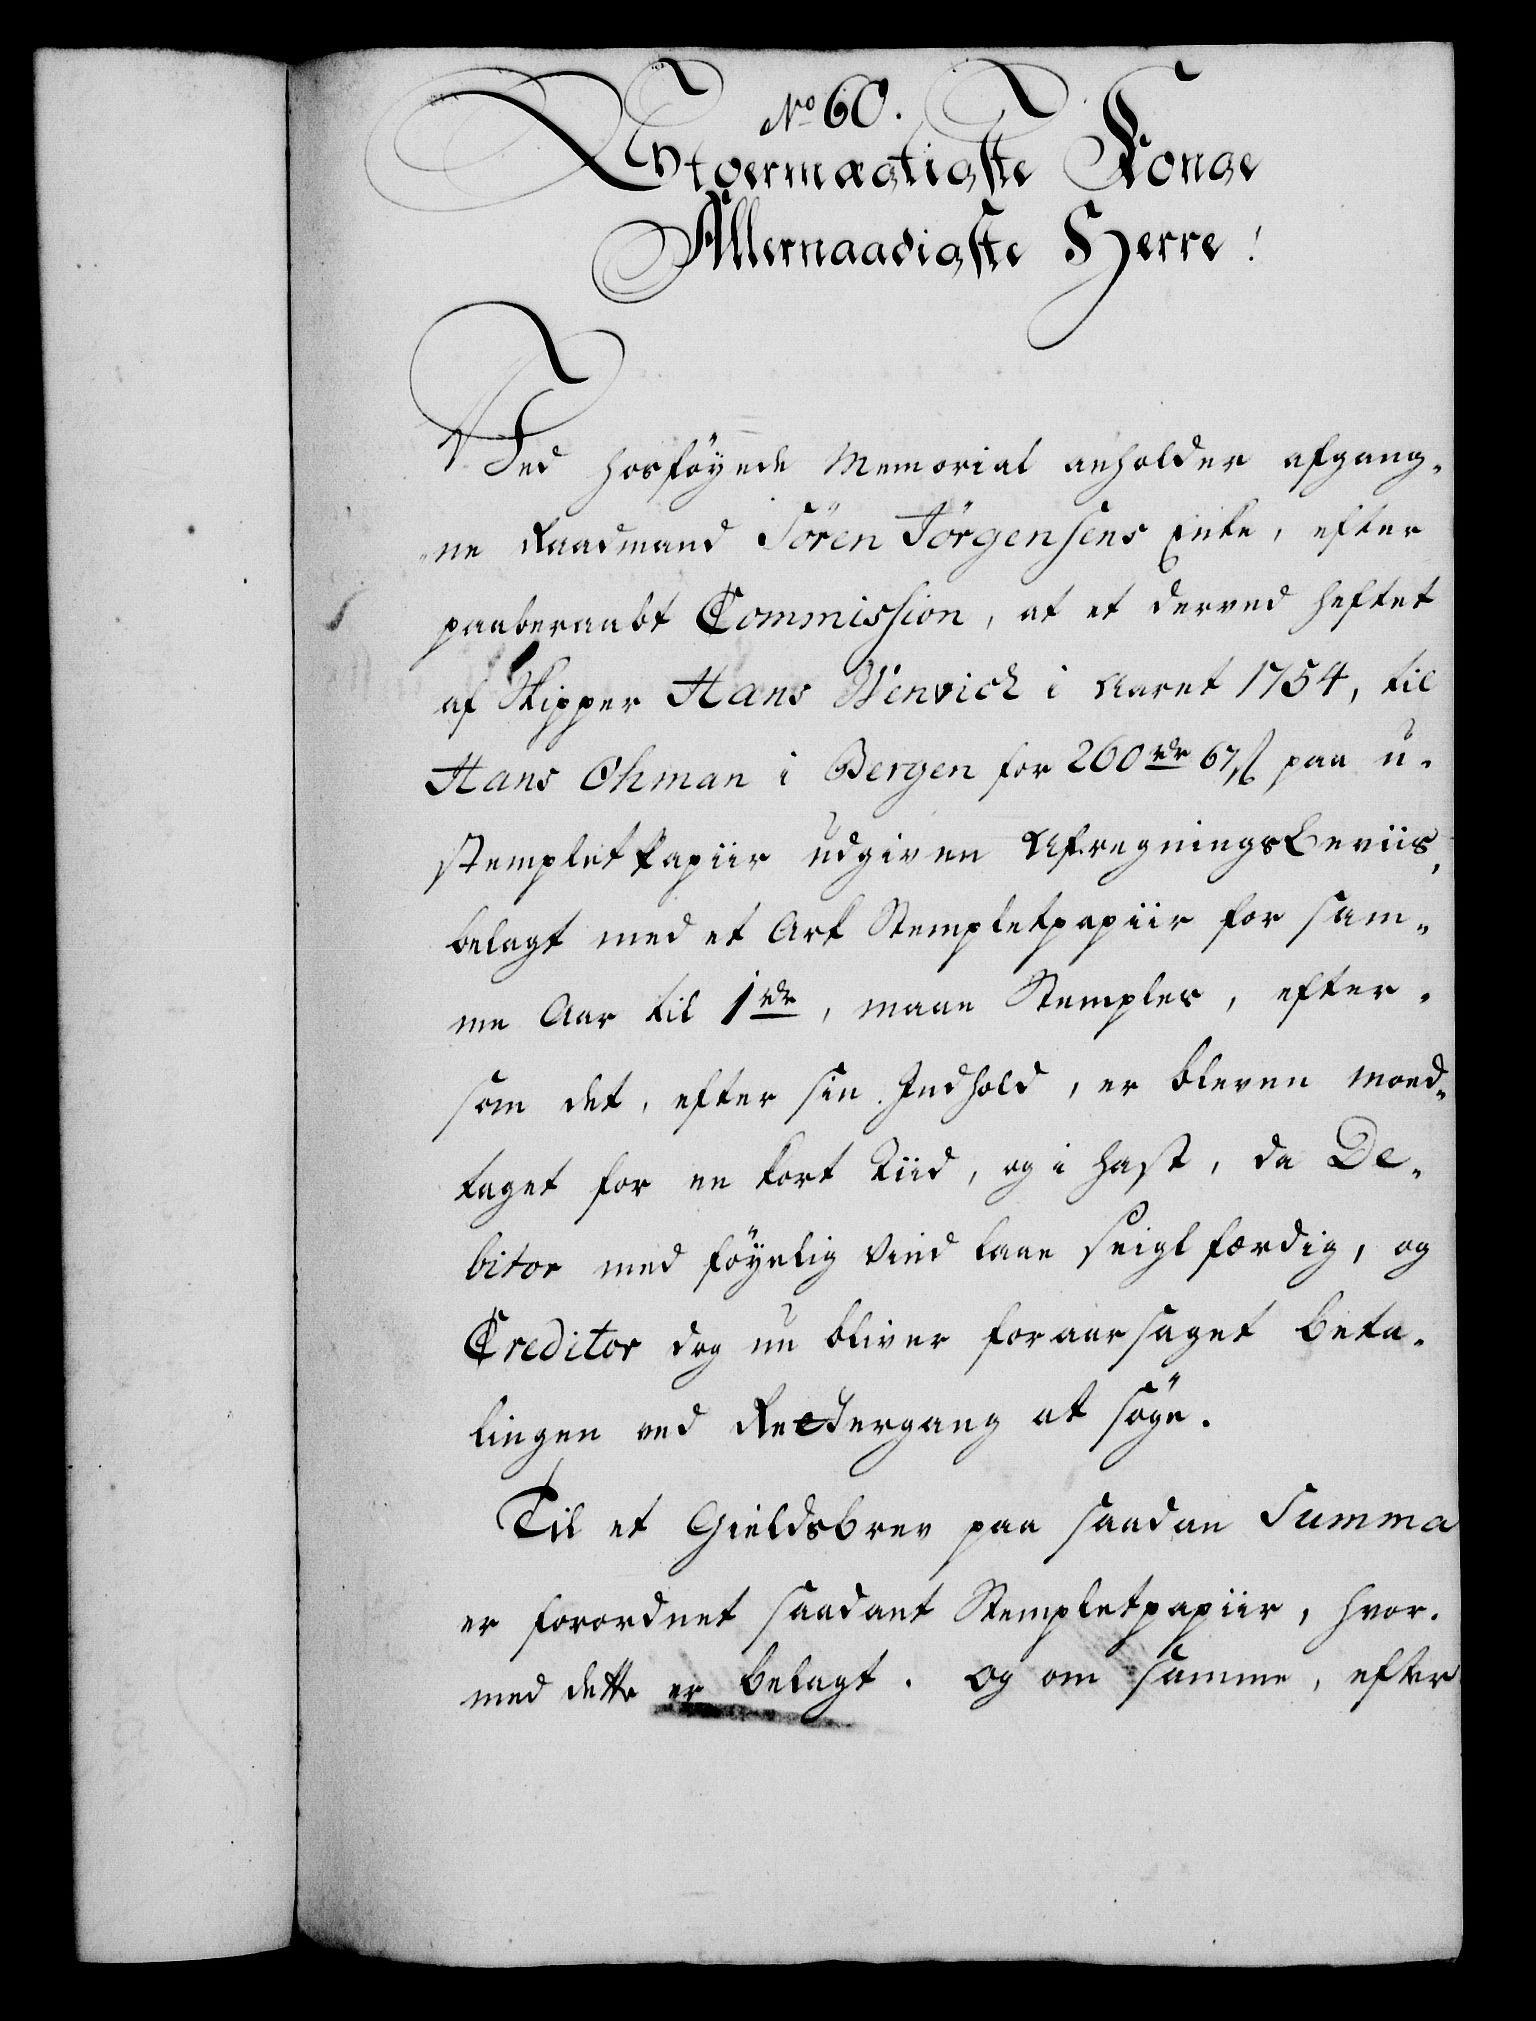 No 60.
Stormægtigste Konge
Allernaadigste Herre!
Ved hosföyede Memorial anholder afgang-
ne Raadmand Sören Jörgensens Enke, efter
paaberaabt Commission, at et derved heftet
af Skipper Hans Wenvich i Aaret 1754, til
Hans Ohman i Bergen for 260 rdr 67 ß paa u-
stemplet Papiir udgiven Afregnings Beviis,
belagt med et Ark Stempletpapiir for sam-
me Aar til 1 rdr, maae Stemples, efter-
som det, efter sin Indhold, er bleven mod-
taget for en kort Tiid, og i hast, da De-
bitor med föyelig Vind laae seiglfærdig, og
Creditor dog nu bliver foraarsaget beta-
lingen ved Rettergang at söge.
Til et Gieldsbrev paa saadan Summa
er forordnet saadant Stempletpapiir, hvor-
med dette er belagt. Og om samme, efter